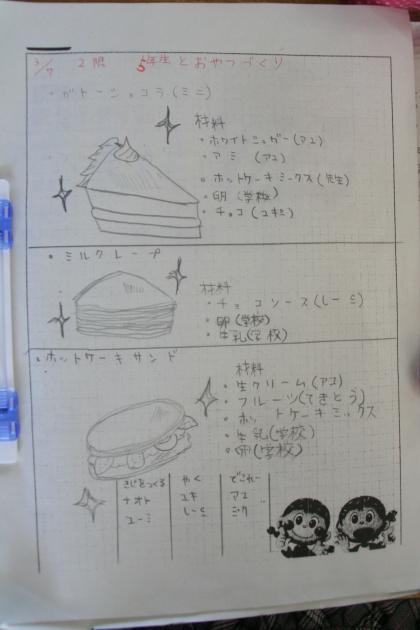 3/7 2限 5年生とおやつづくり
・ガトーショコラ(ミニ)
材料
・ホワイトシュガー(アユ)
・アミ (アユ)
・ホットケーキミックス(先生)
・卵(学校)
・チョコ(ユキミ)
・ミルクレープ
材料
・チョコソース(しーミ)
・卵(学校)
・牛乳(学校)
・ホットケーキサンド
材料
・生クリーム(アユ)
・フルーツ(てきとう)
・ホットケーキミックス
・牛乳(学校)
・卵(学校)
きじをつくる やく でこれー
ナオト ユキ アユ
ユーミ